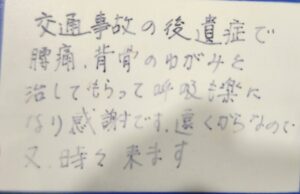 交通事故の後遺症で
腰痛、背骨のゆがみを
治してもらって呼吸も楽に
なり感謝です。遠くからなので
又、時々来ます